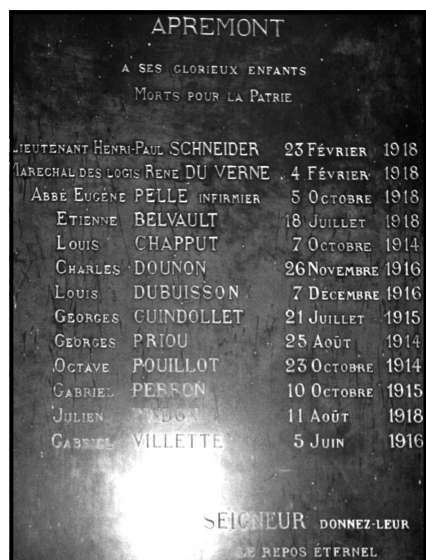 APREMONT
A SES GLORIEUX ENFANTS
MORTS POUR LA PATRIE
LIEUTENANT HENRI-PAUL SCHNEIDER 23 FÉVRIER 1918
MARECHAL DES LOGIS RENÉ DU VERNE . 4 FÉVRIER 1918
ABBÉ EUGÈNE PELLE INFIRMIER 5 OCTOBRE 1918
ETIENNE BELVAULT 18 JUILLET 1918
LOUIS CHAPPUT 7 OCTOBRE 1914
CHARLES DOUNON 26 NOVEMBRE 1916
LOUIS DUBUISSON 7 DÉCEMBRE 1916
GEORGES GUINDOLLET 21 JUILLET 1915
GEORGES PRIOU 25 AOÛT 1914
OCTAVE POUILLOT 23 OCTOBRE 1914
GABRIEL PERRON 10 OCTOBRE 1915
JULIEN 11 AOÛT 1918
GABRIEL VILLETTE 5 JUIN 1916
SEIGNEUR DONNEZ-LEUR
LE REPOS ÉTERNEL